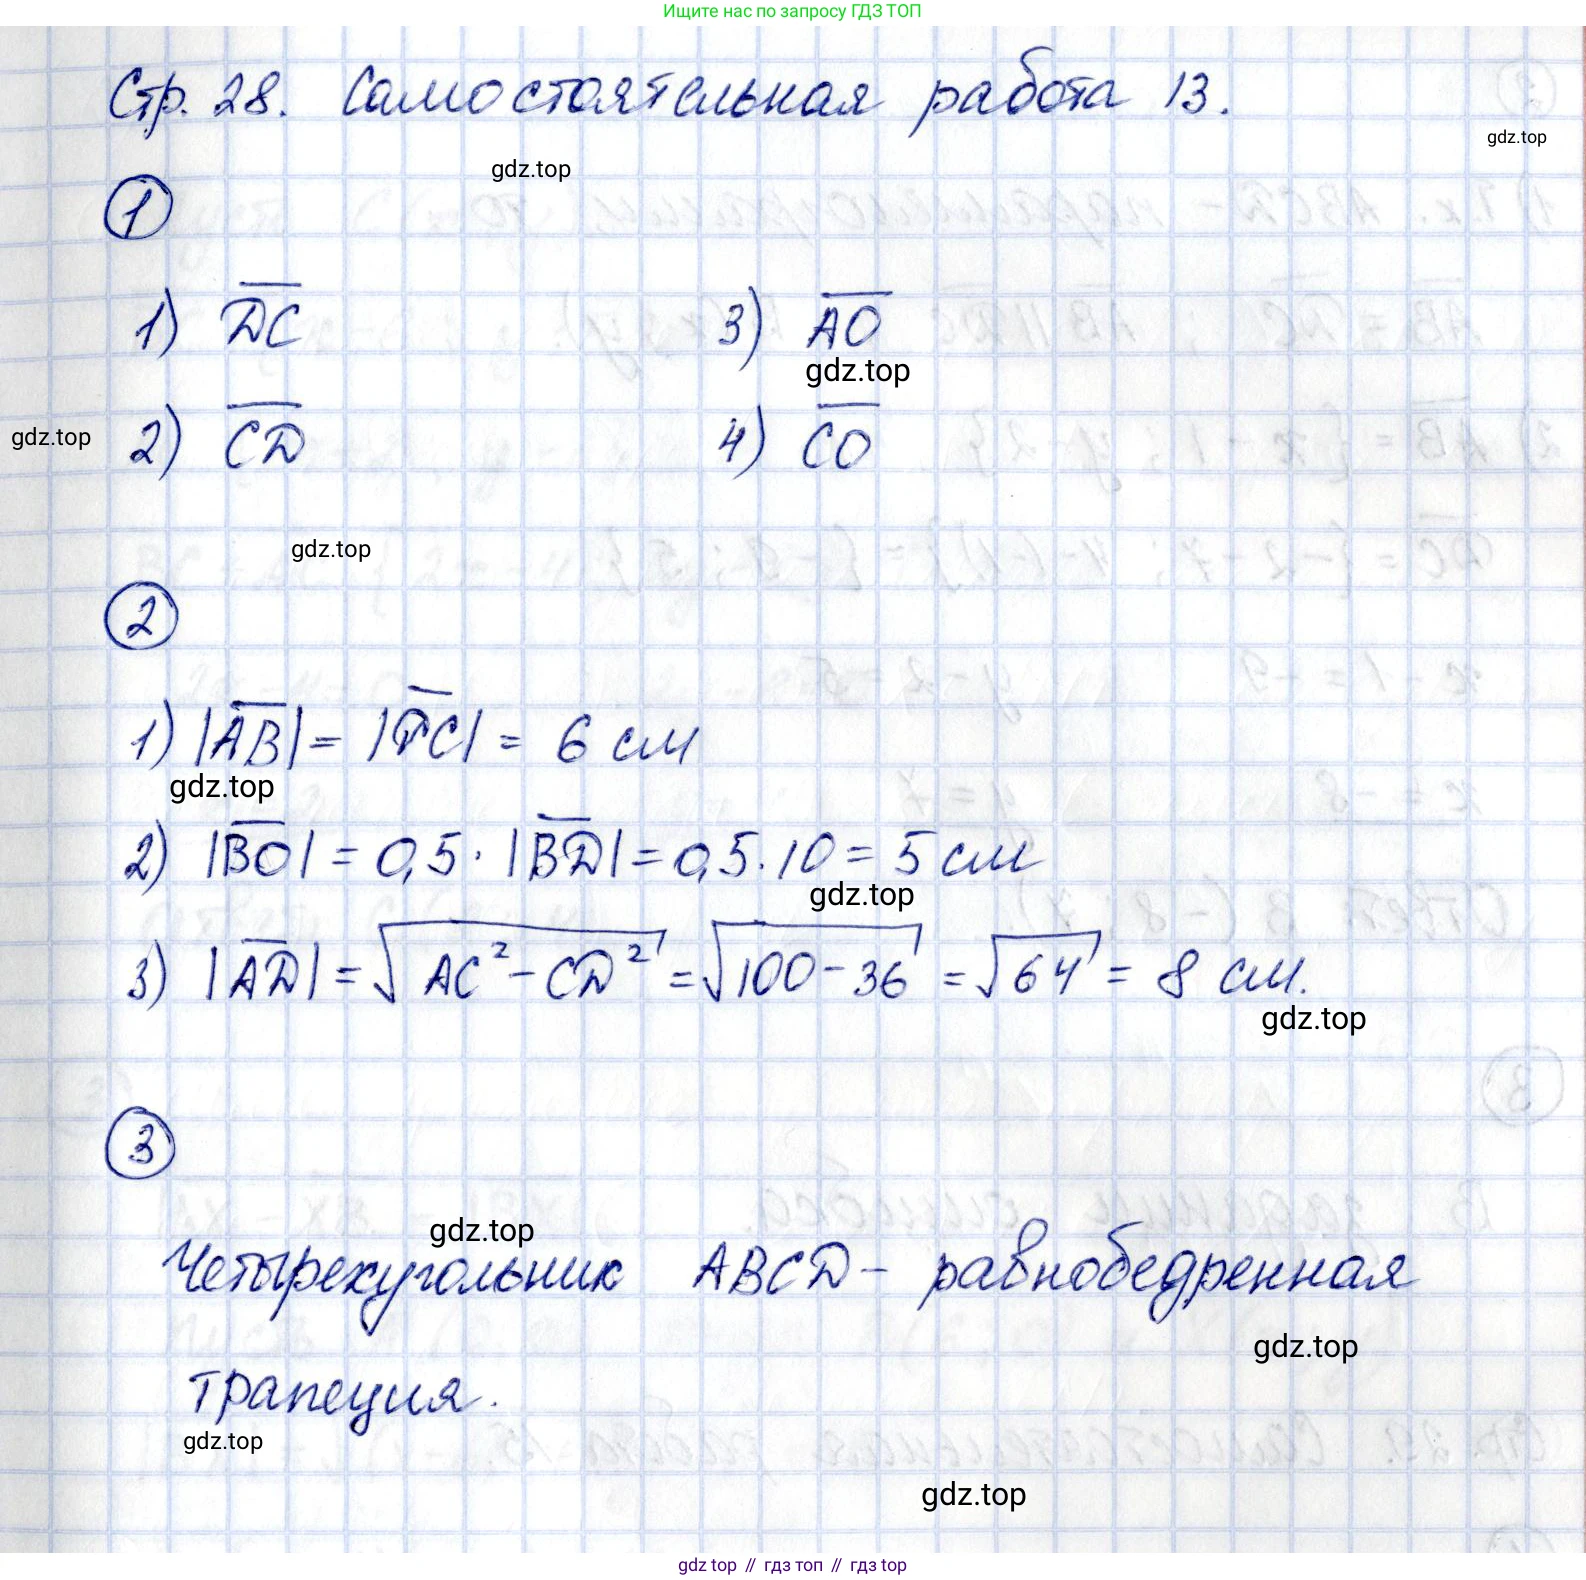 Ищите нас по запросу ГДЗ ТОП
Стр. 28. Самостоятельная работа 13.
gdz.top
gdz.top
1
1) DC
3) AO
gdz.top
gdz.top
2) CD
4) CO
gdz.top
2
1) |AB| = |DC| = 6 см
gdz.top
2) |BO| = 0,5 · |BD| = 0,5 · 10 = 5 см
gdz.top
3) |AD| = √AC² - CD² = √100 - 36 = √64 = 8 см.
gdz.top
3
gdz.top
Четырехугольник ABCD - равнобедренная
gdz.top
трапеция.
gdz.top
gdz.top
gdz top // гдз топ // гдз top